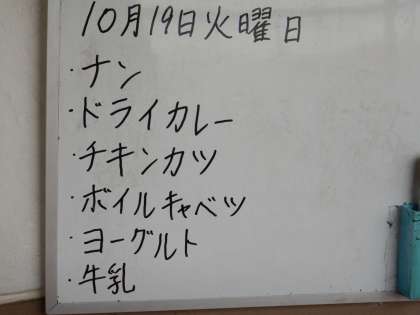 10月19日火曜日
・ナン
・ドライカレー
・チキンカツ
・ボイルキャベツ
・ヨーグルト
・牛乳